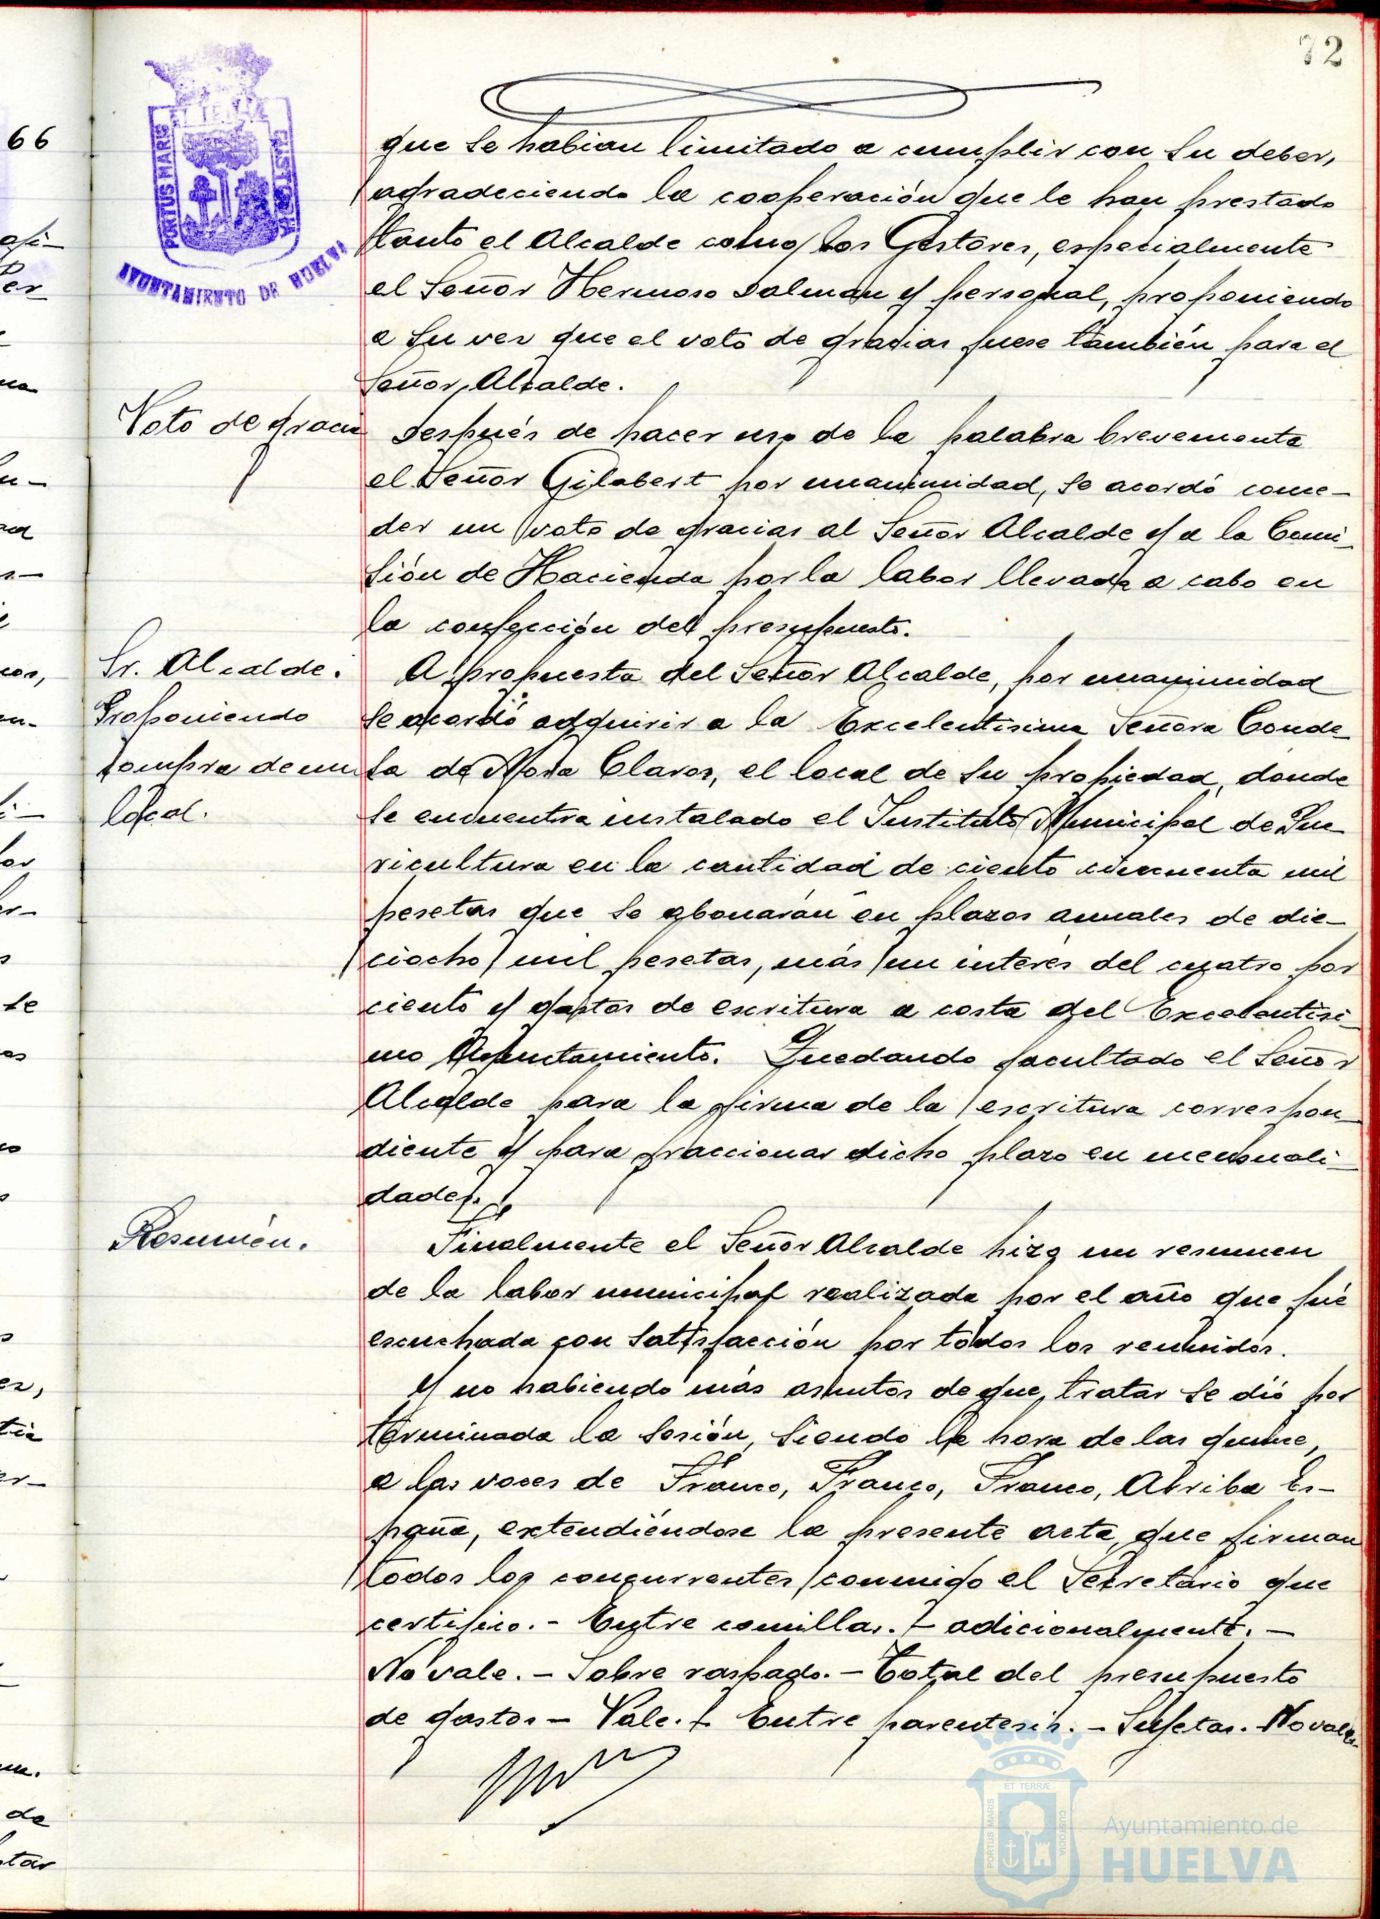 72
PORTUS MARIS
CUSTODIA
AYUNTAMIENTO DE HUELVA
66
que se habian limitado a cumplir con su deber,
agradeciendo la cooperación que le han prestado
tanto el Alcalde como los Gestores, especialmente
el Señor Hermoso Dalman y personal, proponiendo
a su vez que el voto de gracias fuese también para el
Señor Alcalde.
Voto de gracia
Después de hacer uso de la palabra brevemente
el Señor Gilabert por unanimidad, se acordó conce-
der un voto de gracias al Señor Alcalde y a la Comi-
sión de Hacienda por la labor llevada a cabo en
la confección del presupuesto.
Sr. Alcalde.
Proponiendo
compra de un
local.
A propuesta del Señor Alcalde, por unanimidad
se acordó adquirir a la Excelentísima Señora Conde-
sa de Mora Claros, el local de su propiedad, donde
se encuentra instalado el Instituto Municipal de Pue
ricultura en la cantidad de ciento cincuenta mil
pesetas que se abonarán en plazos anuales de die-
ciocho mil pesetas, más un interés del cuatro por
ciento y gastos de escritura a costa del Excelentísi-
mo Ayuntamiento. Quedando facultado el Señor
Alcalde para la firma de la escritura correspon-
diente y para fraccionar dicho plazo en mensuali-
dades.
Resumén.
Finalmente el Señor Alcalde hizo un resumen
de la labor municipal realizada por el año que fué
escuchada con satisfacción por todos los reunidos.
Y no habiendo más asuntos de que tratar se dió por
terminada la sesión, siendo la hora de las quince,
a las voces de Franco, Franco, Franco, Arriba Es-
paña, extendiéndose la presente acta, que firman
todos los concurrentes conmigo el Secretario que
certifico. - Entre comillas. - adicionalmente. -
No vale. - Sobre raspado. - Total del presupuesto
de gastos - Vale. - Entre parentesis. - Sujetas. No vale.
ET TERRÆ
PORTUS MARIS
CUSTODIA
Ayuntamiento de
HUELVA